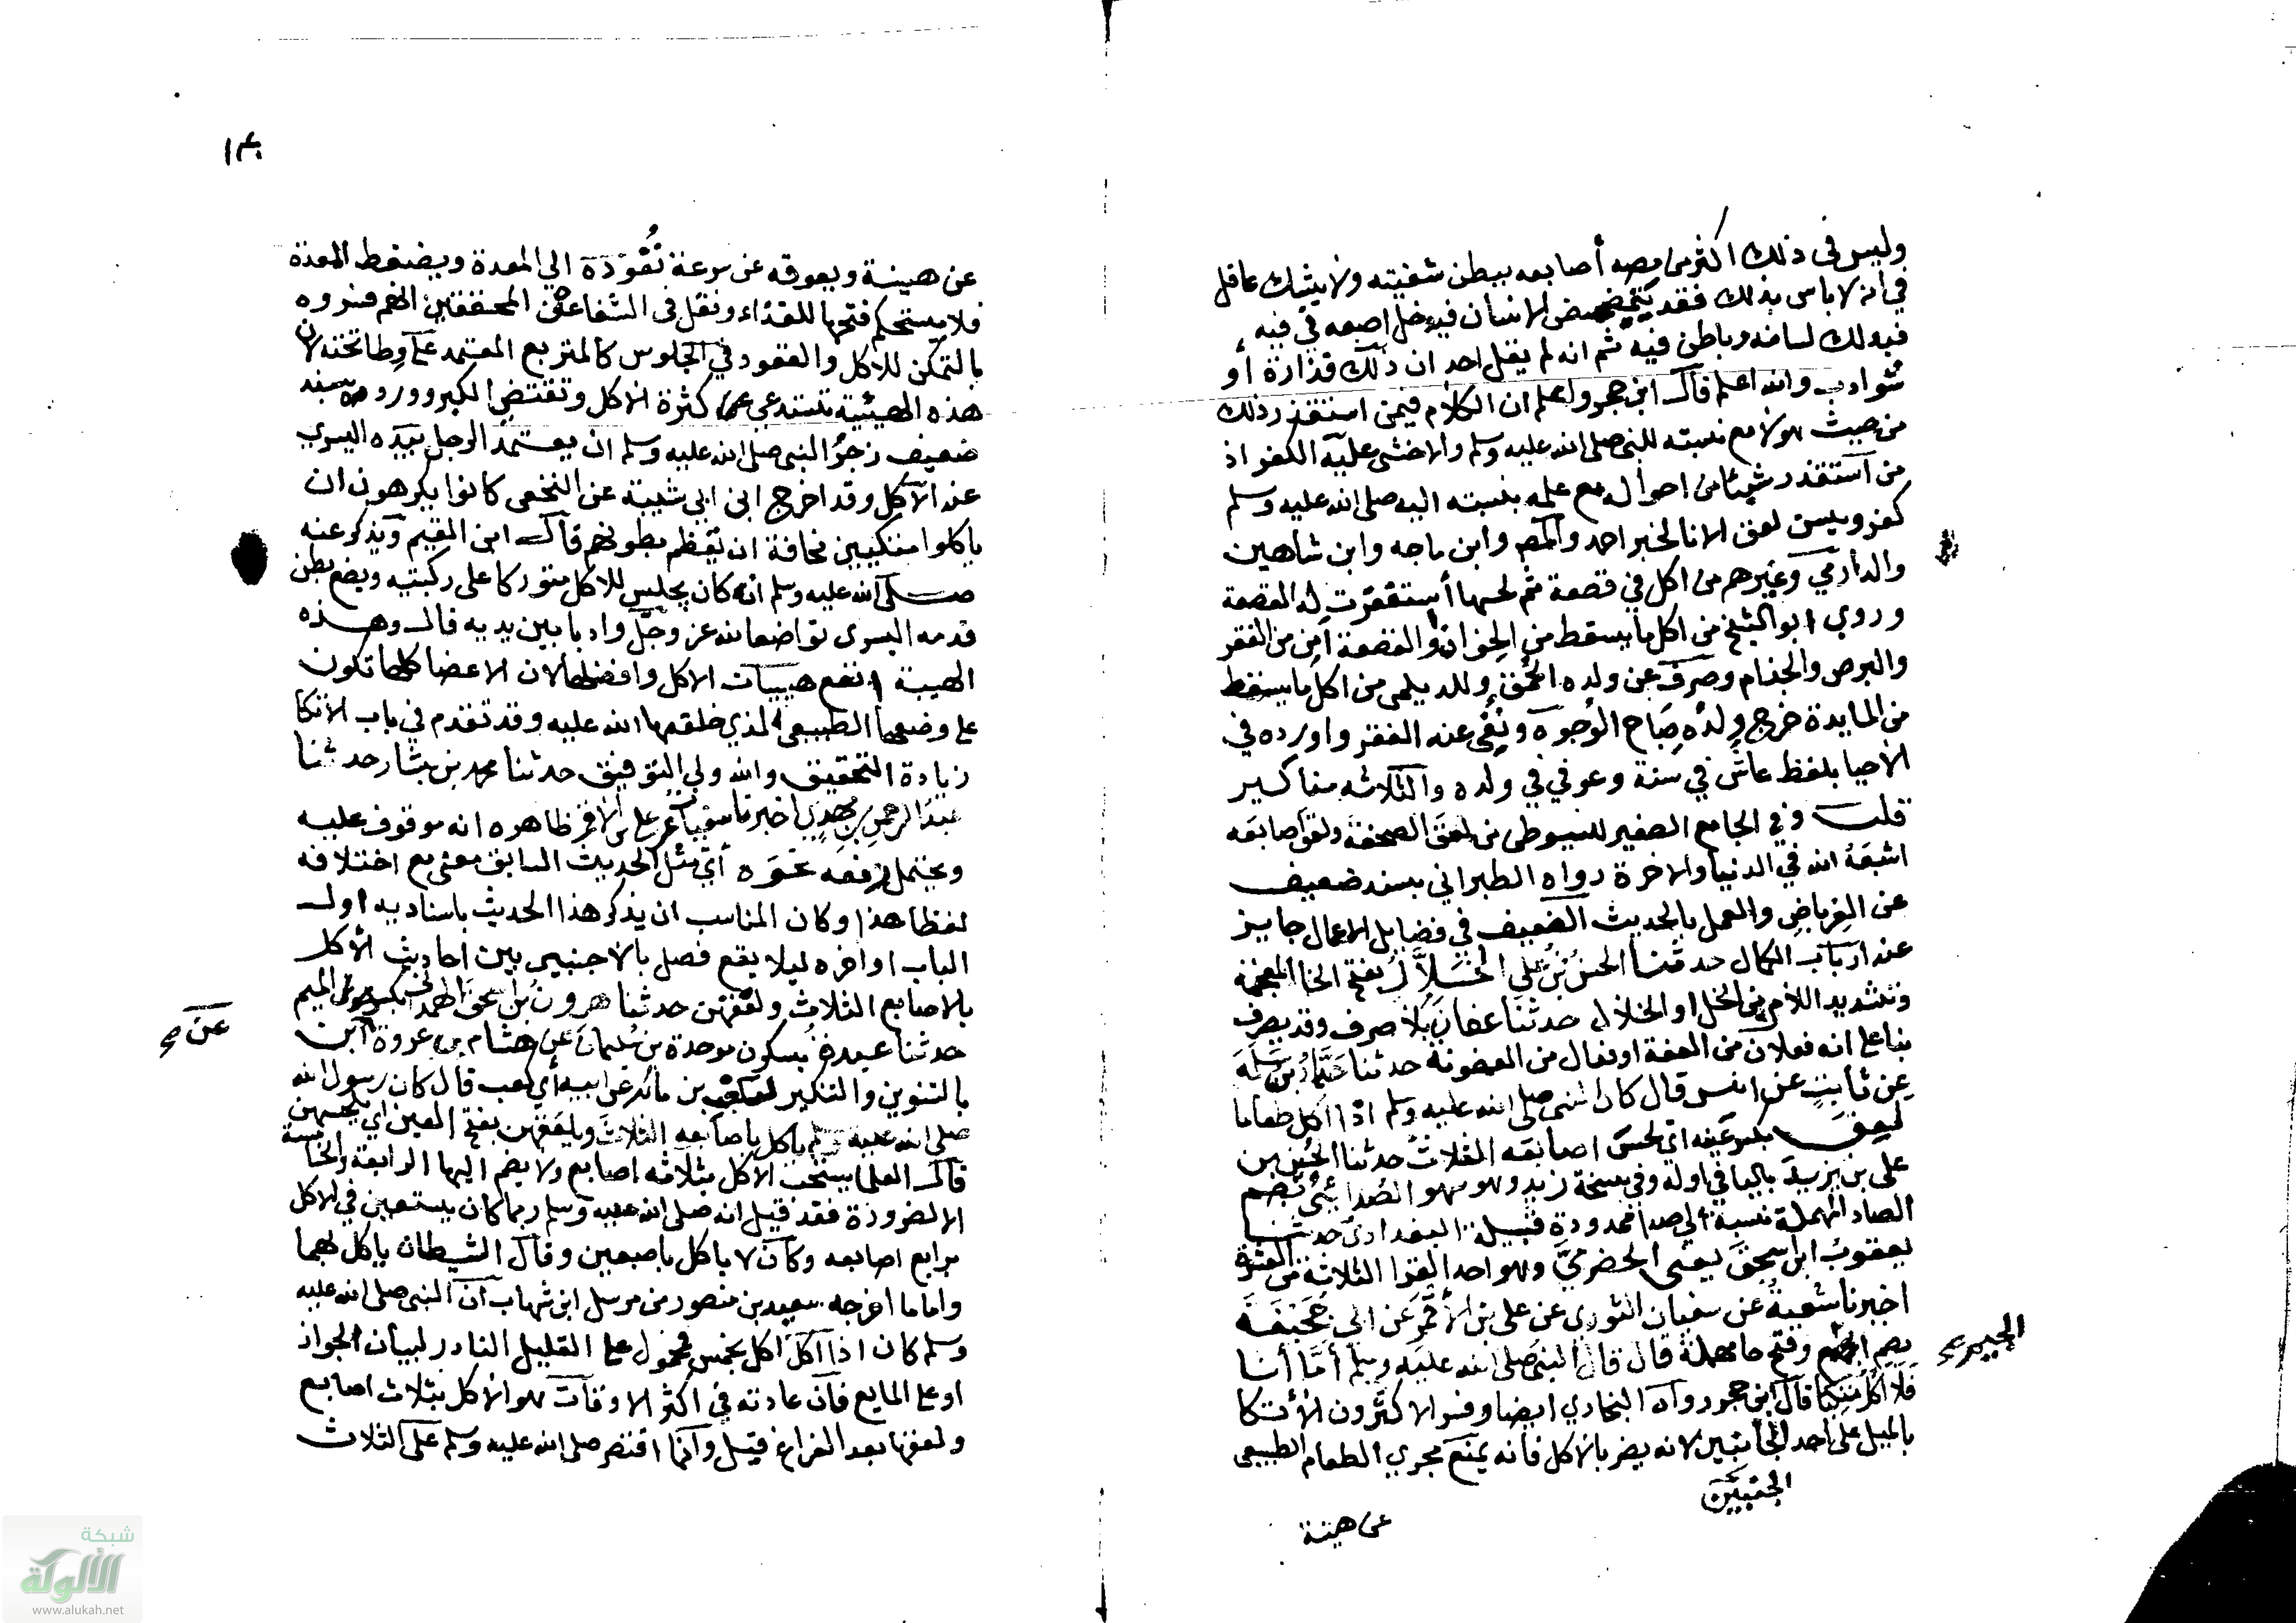 وليس في ذلك اكثر من مصه أصابعه ببطن شفتيه ولا يشك عاقل
في انه لا باس بذلك فقد يتمضمض الانسان فيدخل اصبعه في فيه
فيدلك لسانه وباطن فيه ثم انه لم يقل احد ان ذلك قذارة أو
سوادب والله اعلم قال ابن حجر واعلم ان الكلام فيمن استقذر ذلك
من حيث هو لا مع نسبته للنبي صلى الله عليه وسلم والا خشي عليه الكفر اذ
من استقذر شيئا من احواله مع علمه بنسبته اليه صلى الله عليه وسلم
كفر ويسن لعق الانا لخبر احمد والمص وابن ماجه وابن شاهين
والدارمي وغيرهم من اكل في قصعة ثم لحسها أستغفرت له القصعة
وروي ابو الشيخ من اكل ما يسقط من الخوان والقصعة أمن من الفقر
والبرص والجذام وصرف عن ولده الحمق وللديلمى من اكل ما يسقط
من المايدة خرج ولده صباح الوجوه ونفي عنه الفقر واورده في
الاحيا بلفظ عاش في سعة وعوفي في ولده والثلاثه مناكير
قلت وفي الجامع الصغير للسيوطى من لعق الصحفة ولعق اصابعه
اشبعه الله في الدنيا والاخرة رواه الطبراني بسند ضعيف
عن العرباض والعمل بالحديث الضعيف في فضايل الاعمال جايز
عند ارباب الكمال حدثنا الحسن بن علي الخلال بفتح الخا المعجمة
وتشديد اللام من الخل او الخلال حدثنا عفان بلا صرف وقد يصرف
بنا على انه فعلان من العفة او فعال من العفونة حدثنا حماد بن سلمة
عن ثابت عن انس قال كان النبي صلى الله عليه وسلم اذا اكل طعاما
لعق بكسر عينه اي لحس اصابعه الثلاث حدثنا الحسن بن
على بن يزيد باليا في اوله وفي نسخة زيد وهو سهو الصدائي بضم
الصاد المهملة نسبة الى صدا ممدودة قبيلة البغدادى حدثنا
يعقوب ابن اسحق يعنى الحضرمي وهو احد القرا الثلاثة من العشرة
اخبرنا شعبة عن سفيان الثورى عن على بن الأقمر عن ابي جحيفة
بضم الجيم وفتح حا مهملة قال قال النبي صلى الله عليه وسلم أما أنا
الجيم صح
فلا اكل متكئا قال ابن حجر رواه البخاري ايضا وفسر الاكثرون الاتكا
بالميل على احد الجانبين لانه يضر بالاكل فانه يمنع مجري الطعام الطبيعى
الجنبين
عن هيئة
١٣٠
عن هيئة ويعوقه عن سرعة نفوذه الي المعدة ويضغط المعدة
فلا يستحكم فتحها للغذاء ونقل فى الشفا عن المحققين انهم فسروه
بالتمكن للاكل والقعود في الجلوس كالمتربع المعتمد على وطا تحته لان
هذه الهيئة تستدعى كثرة الاكل وتقتضي الكبر وورد بسند
ضعيف زجر النبي صلى الله عليه وسلم ان يعتمد الرجل بيده اليسري
عند الاكل وقد اخرج ابن ابي شيبة عن النخعى كانوا يكرهون ان
ياكلوا متكيين مخافة ان تعظم بطونهم قال ابن القيم ويذكر عنه
صلى الله عليه وسلم انه كان يجلس للاكل متوركا على ركبتيه ويضع بطن
قدمه اليسرى تواضعا لله عز وجل وادبا بين يديه قال وهذه
الهيئة انفع هييات الاكل وافضلها لان الاعضا كلها تكون
على وضعها الطبيعى الذي خلقها الله عليه وقد تقدم في باب الاتكا
زيادة التحقيق والله ولي التوفيق حدثنا محمد بن بشار حدثنا
عبد الرحمن بن مهدي اخبرنا سفيان عن على بن الاقمر ظاهره انه موقوف عليه
ويحتمل رفعه نحوه أي مثل الحديث السابق معنى مع اختلافه
لفظا هذا وكان المناسب ان يذكر هذا الحديث باسناديه اول
الباب او اخره ليلا يقع فصل بالاجنبي بين احاديث الأكل
بالاصابع الثلاث ولعقهن حدثنا هرون بن اسحق الهمداني بسكون الميم
حدثنا عبدة بسكون موحدة بن سليمان عن هشام بن عروة عن ابن
عن صح
بالتنوين والتنكير لكعب بن مالك عن ابيه أي كعب قال كان رسول الله
صلى الله عليه وسلم ياكل باصابعه الثلاث ويلعقهن بفتح العين اي يلحسهن
قال العلما يستحب الاكل بثلاثه اصابع ولا يضم اليها الرابعة والخامسة
الا لضرورة فقد قيل انه صلى الله عليه وسلم ربما كان يستعين في الاكل
برابع اصابعه وكان لا ياكل باصبعين وقال الشيطان ياكل بهما
واما ما اخرجه سعيد بن منصور من مرسل ابن شهاب ان النبي صلى الله عليه
وسلم كان اذا اكل اكل بخمس فمحمول على القليل النادر لبيان الجواز
او على المايع فان عادته في اكثر الاوقات هو الاكل بثلاث اصابع
ولعقها بعد الفراغ قيل وانما اقتصر صلى الله عليه وسلم على الثلاث
شبكة
الألوكة
www.alukah.net